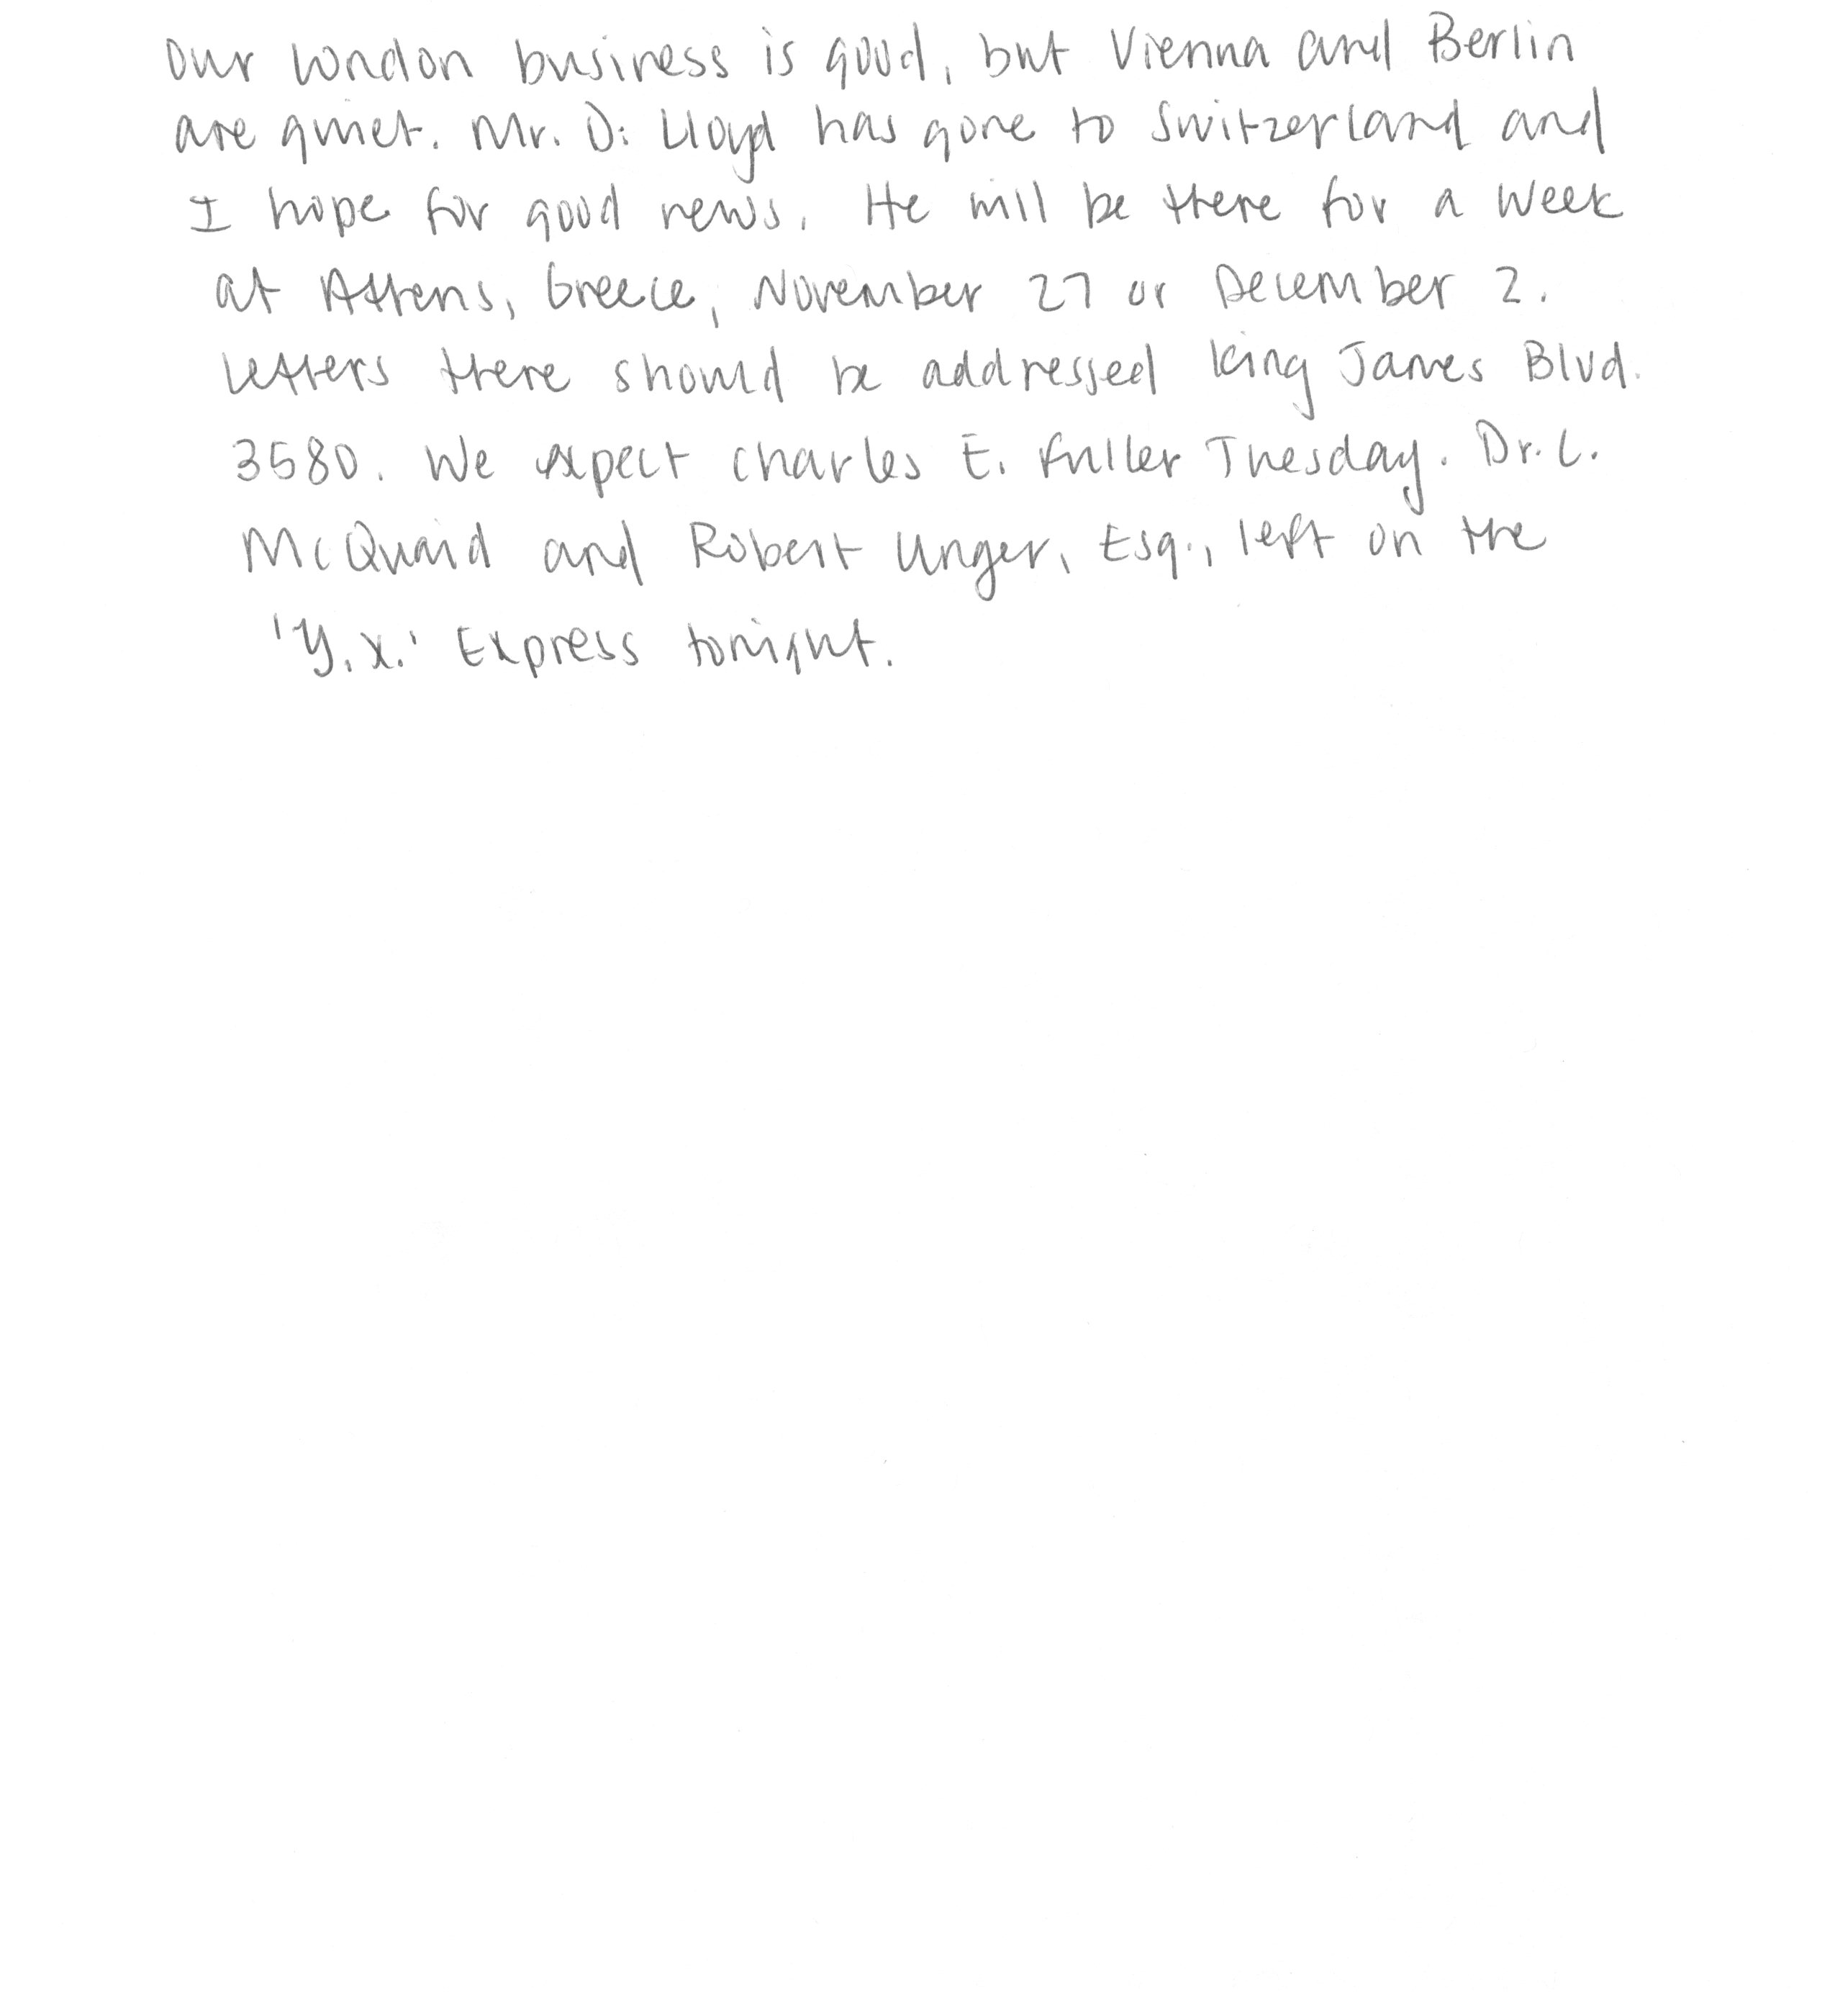 Our London business is good, but Vienna and Berlin
are quiet. Mr. D. Lloyd has gone to Switzerland and
I hope for good news. He will be there for a week
at Athens, Greece, November 27 or December 2.
Letters there should be addressed King James Blvd.
3580. We expect Charles E. Fuller Tuesday. Dr. L.
McQuaid and Robert Unger, Esq., left on the
'Y.X.' Express tonight.